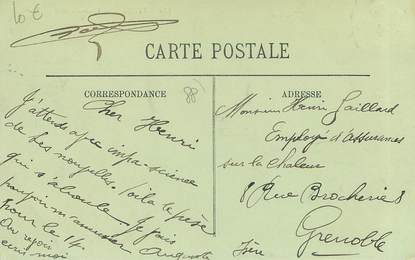 10 €
CARTE POSTALE
CORRESPONDANCE
ADRESSE
88
Cher Henri
J'attends avec impa-science
de tes nouvelles. Voila le
qui s'alonde Je vais
pouvoir m'amuser
pour le 14
Au revoir Auguste
ecri moi
Monsieur Henri Gaillard
Employé d'Assurances
sur la Chaleur
8 Rue Brocherie 8
Grenoble
Isère